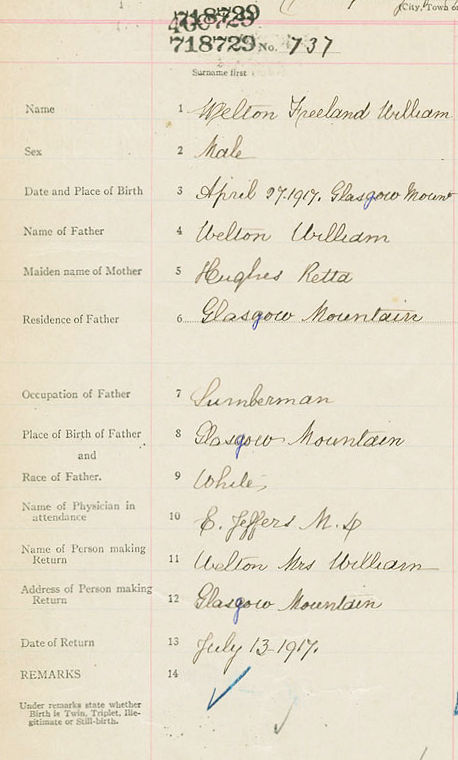 (City, Town o
718729
718729 No. 737
Surname first
Name 1 Welton Freeland William
Sex 2 Male
Date and Place of Birth 3 April 27.1917. Glasgow Mount
Name of Father 4 Welton William
Maiden name of Mother 5 Hughes Retta
Residence of Father 6 Glasgow Mountain
Occupation of Father 7 Lumberman
Place of Birth of Father 8 Glasgow Mountain
and
Race of Father. 9 White
Name of Physician in
attendance 10 E. Jeffers M.D
Name of Person making
Return 11 Welton Mrs William
Address of Person making
Return 12 Glasgow Mountain
Date of Return 13 July 13-1917.
REMARKS 14
Under remarks state whether
Birth is Twin, Triplet, Ille-
gitimate or Still-birth.